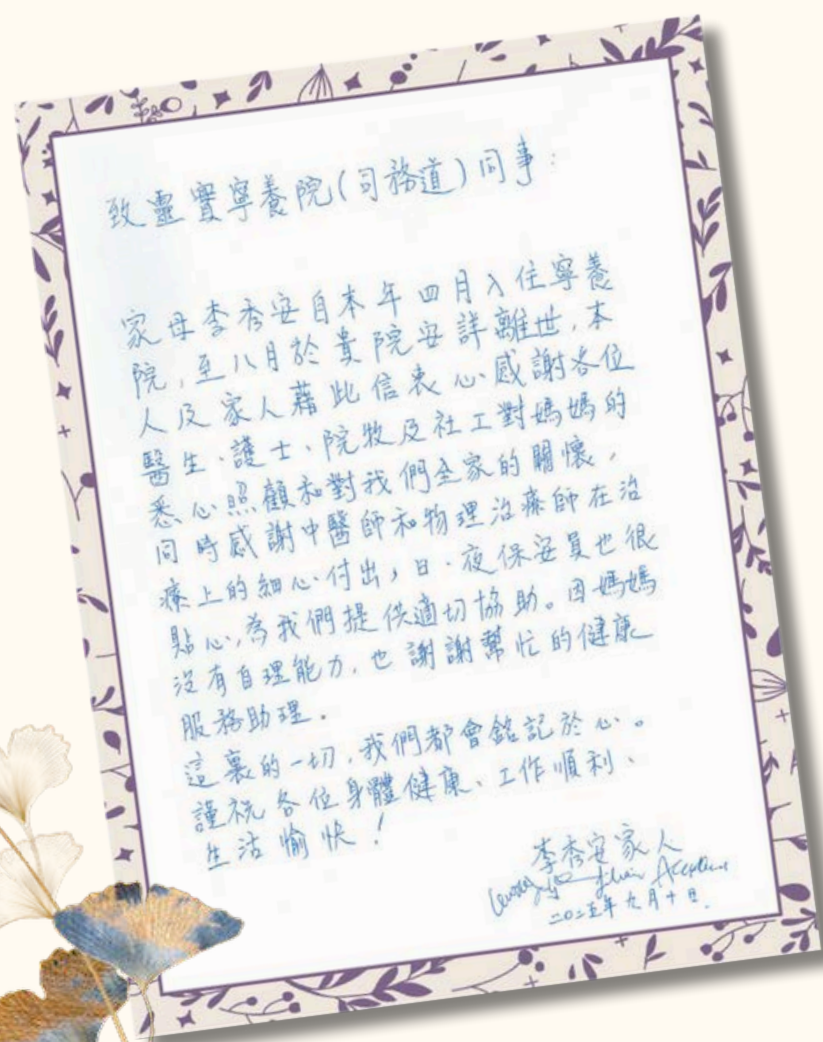 致靈實寧養院(司務道)同事：
家母李秀安自本年四月入住寧養
院，至八月於貴院安詳離世，本
人及家人藉此信衷心感謝各位
醫生、護士、院牧及社工對媽媽的
悉心照顧和對我們全家的關懷，
同時感謝中醫師和物理治療師在治
療上的細心付出，日、夜保安員也很
貼心，為我們提供適切協助。因媽媽
沒有自理能力，也謝謝幫忙的健康
服務助理。
這裏的一切，我們都會銘記於心。
謹祝各位身體健康、工作順利、
生活愉快！
李秀安家人
二〇二五年九月十日.